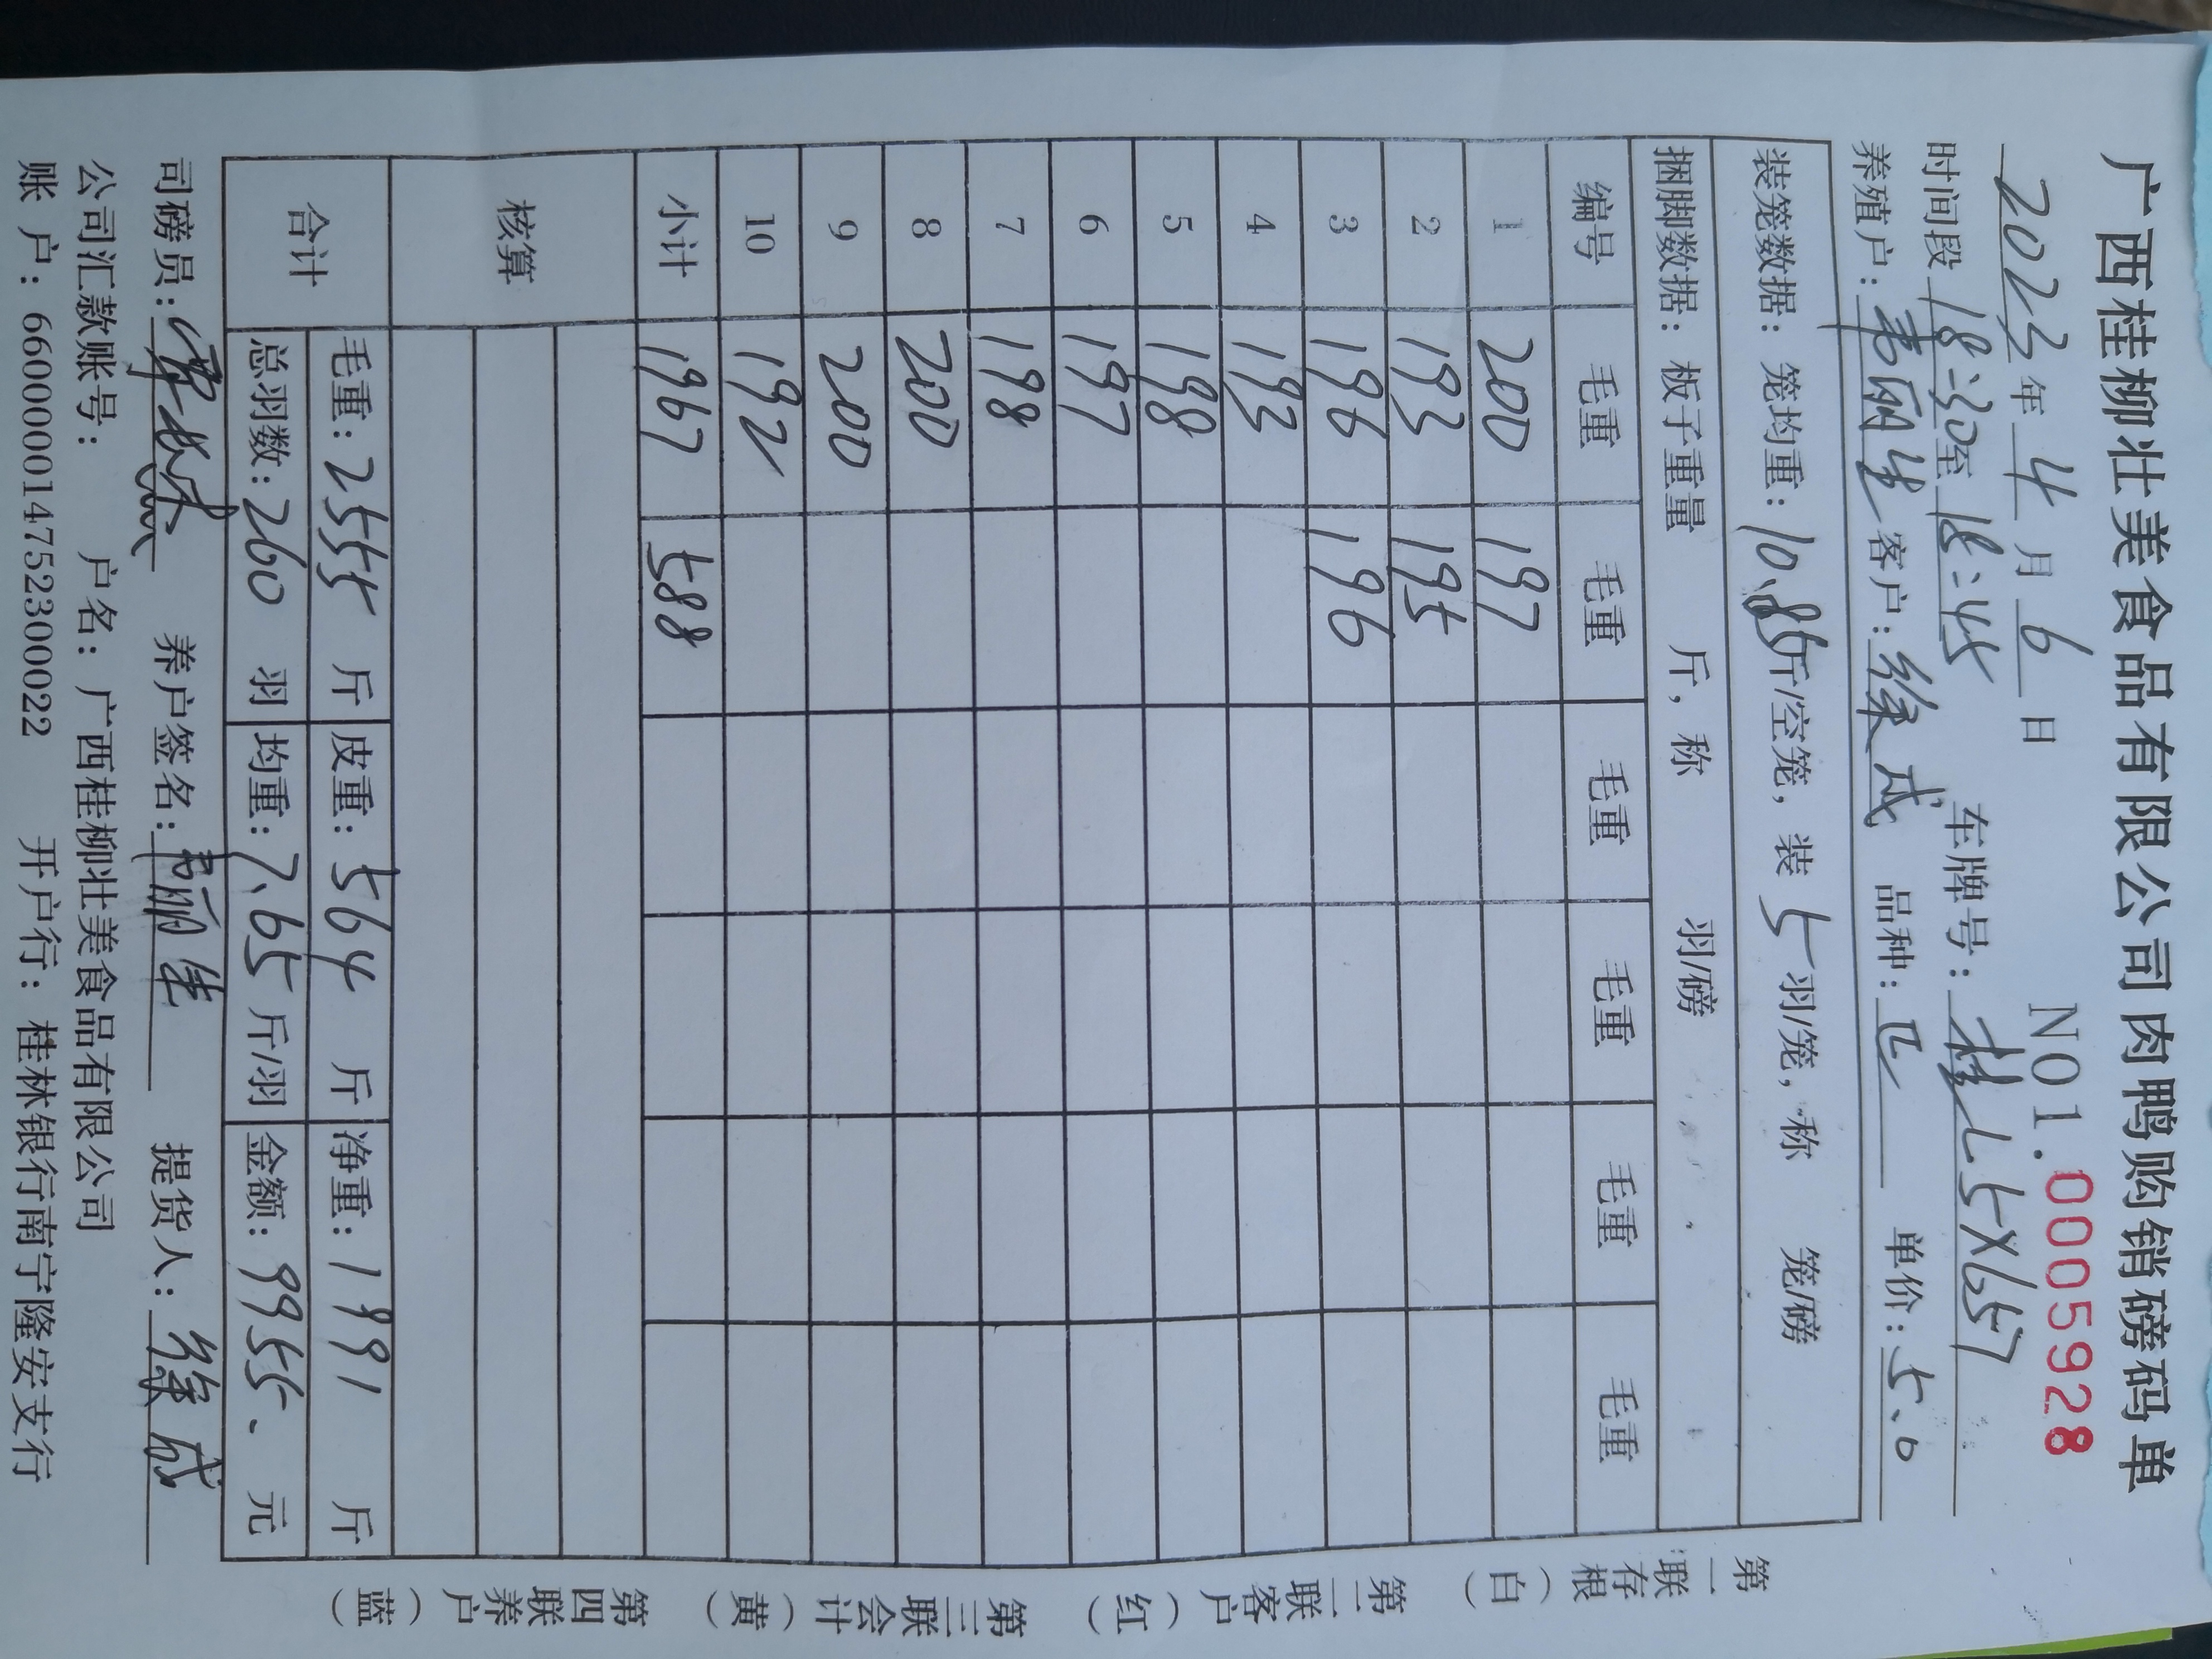 广西桂柳壮美食品有限公司肉鸭购销磅码单
2023年4月6日 NO1.00059​28
时间段18:30至18:45 车牌号:桂L5X657
养殖户:韦丽生 客户:徐成 品种: 单价:5.0
装笼数据:笼均重:10.85斤/空笼,装5羽/笼,称 笼/磅
捆脚数据:板子重量 斤,称 羽/磅
编号 毛重 毛重 毛重 毛重 毛重 毛重
1 200 197
2 193 195
3 196 196
4 193
5 198
6 197
7 198
8 200
9 200
10 192
小计 1967 588
核算
合计 毛重:2555斤 皮重:564斤 净重:1991斤
总羽数:260羽 均重:7.65斤/羽 金额:9955.元
司磅员: 养户签名:韦丽生 提货人:徐成
公司汇款账号: 户名:广西桂柳壮美食品有限公司
账户:660000014752300022 开户行:桂林银行南宁隆安支行
第一联存根(白)
第二联客户(红)
第三联会计(黄)
第四联养户(蓝)